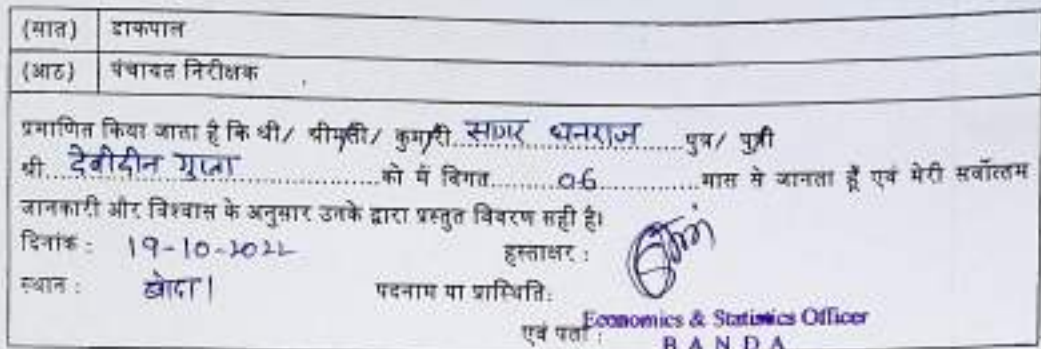 (सात) डाकपाल
(आठ) पंचायत निरीक्षक
प्रमाणित किया जाता है कि श्री/ श्रीमती/ कुमारी..सागर धनराज..पुत्र/ पुत्री
श्री..देवीदीन गुप्ता..को मैं विगत..06..मास से जानता हूँ एवं मेरी सर्वोत्तम
जानकारी और विश्वास के अनुसार उनके द्वारा प्रस्तुत विवरण सही है।
दिनांक : 19-10-2022 हस्ताक्षर :
स्थान : बांदा। पदनाम या प्रास्थिति:
एवं पता : Economics & Statistics Officer
BANDA